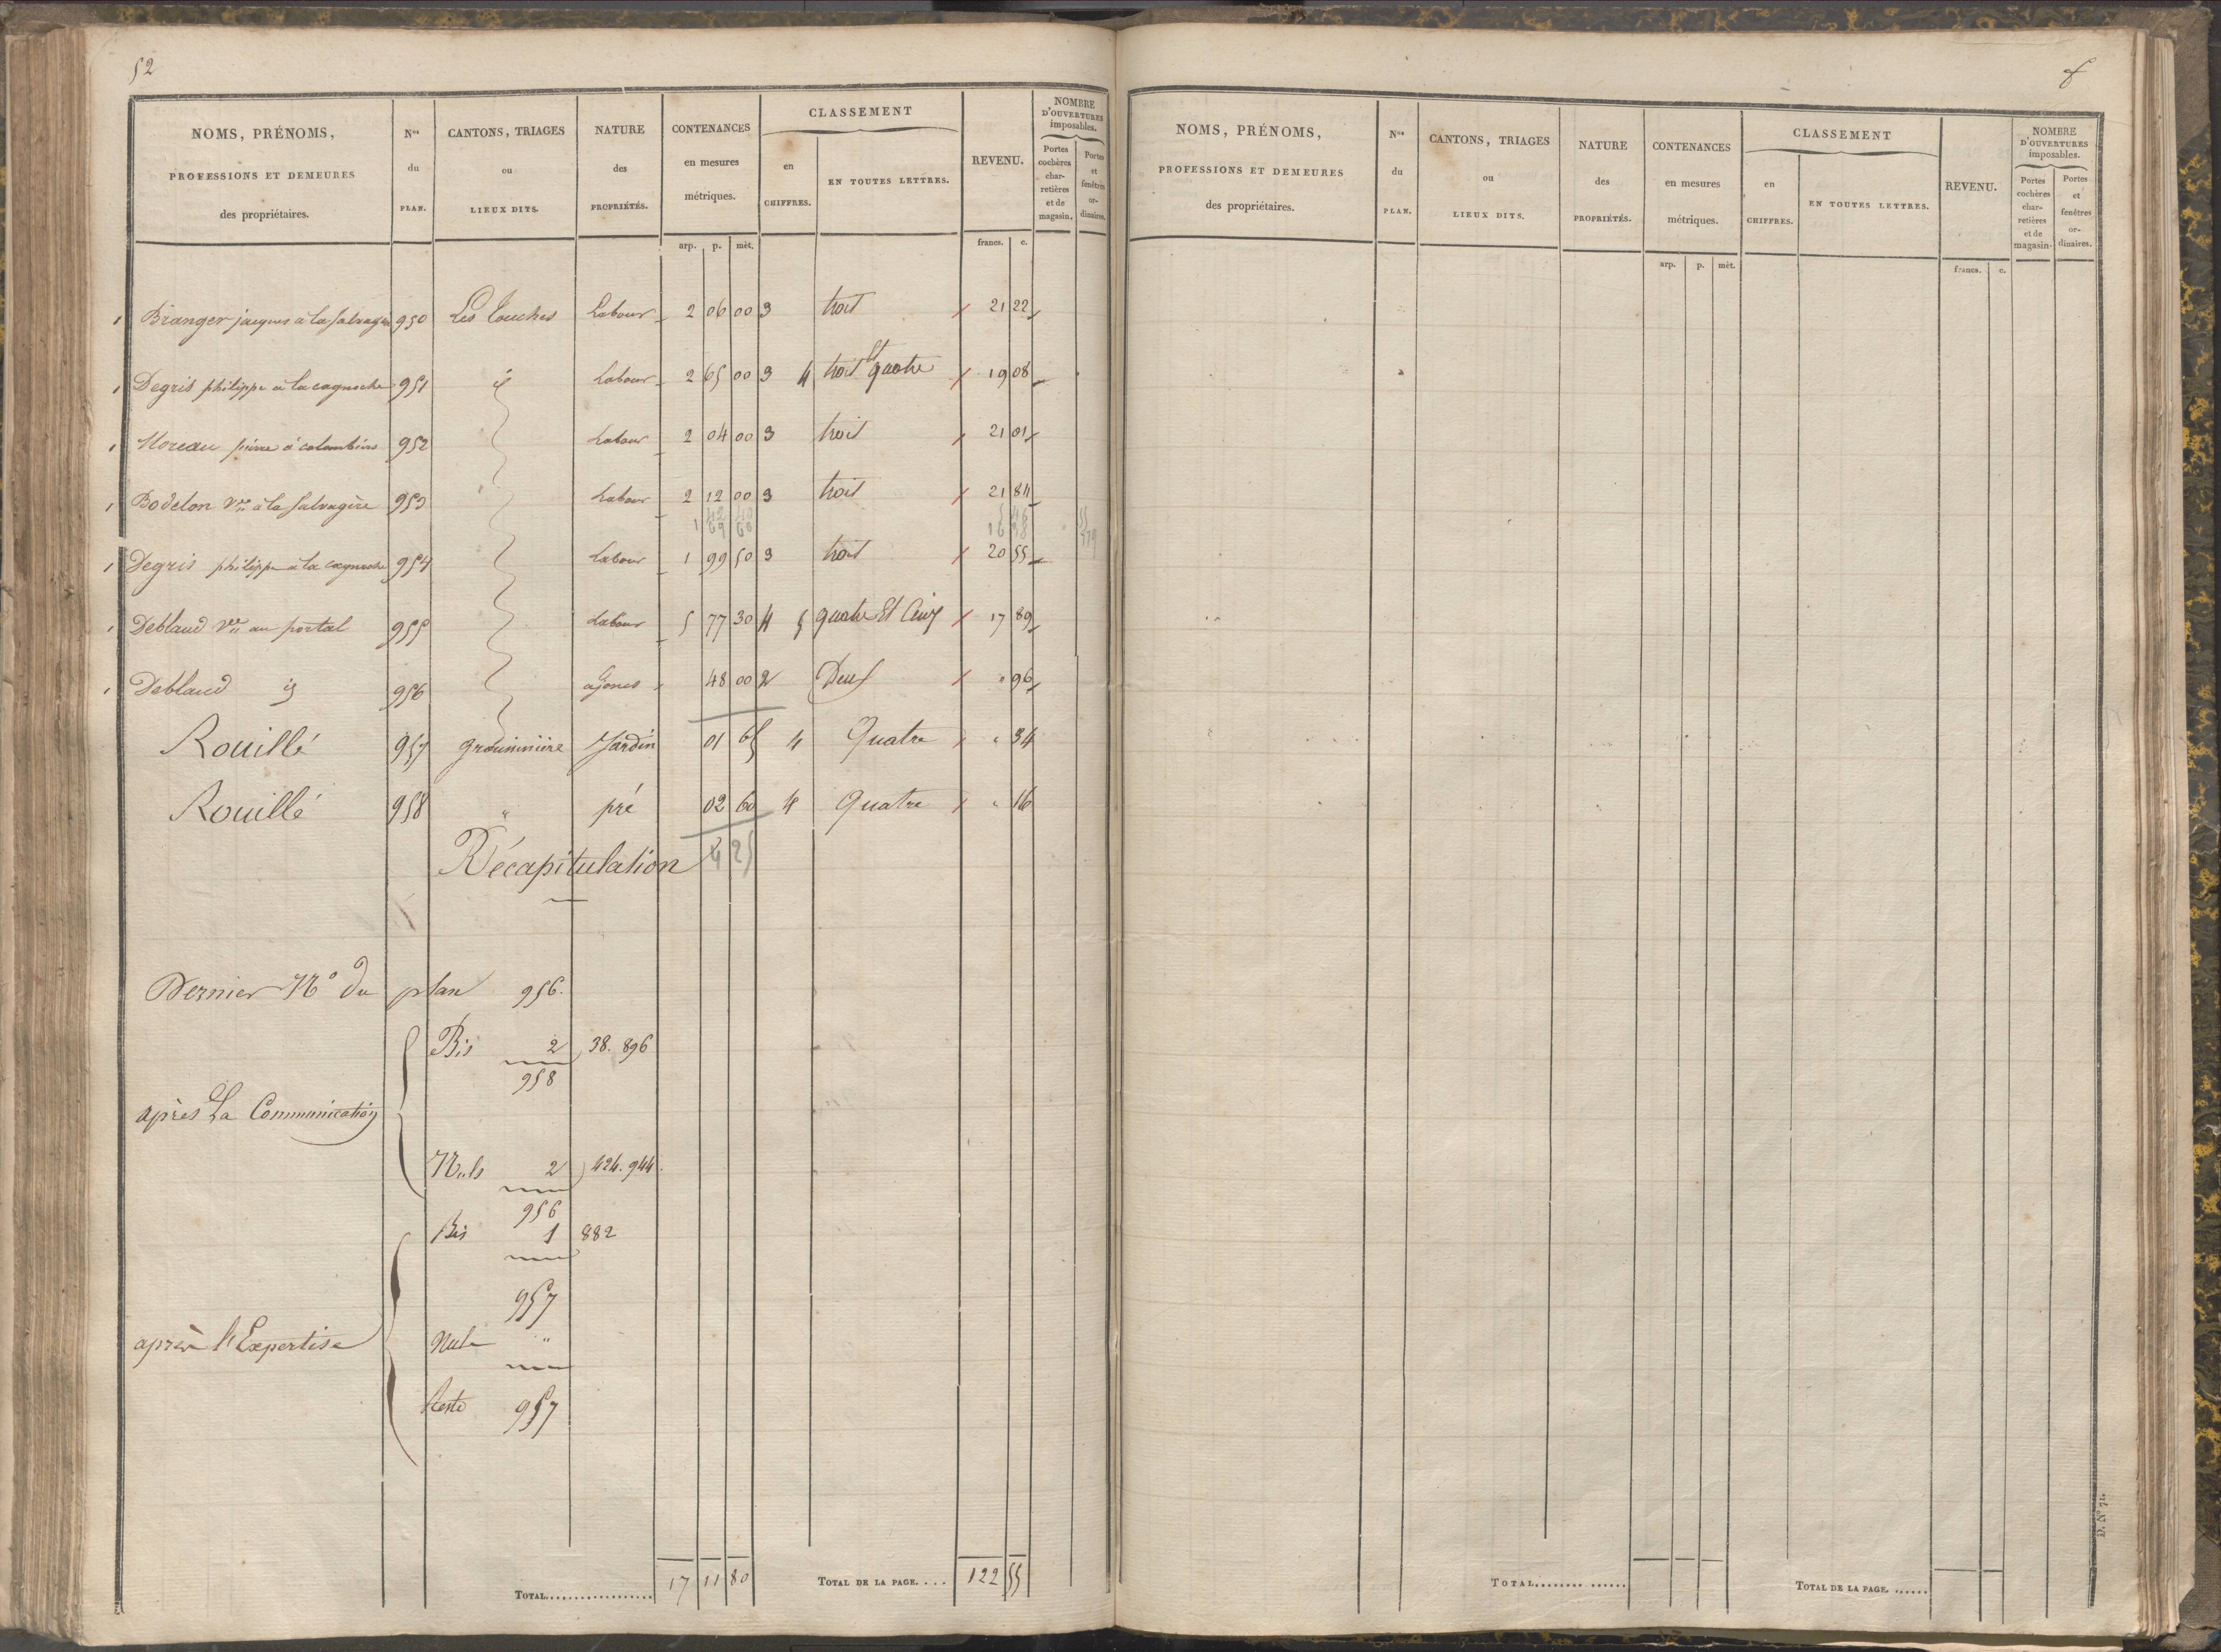 52
NOMS, PRÉNOMS,
PROFESSIONS ET DEMEURES
des propriétaires.
Nos
du
PLAN.
CANTONS, TRIAGES
ou
LIEUX DITS.
NATURE
des
PROPRIÉTÉS.
CONTENANCES
en mesures
métriques.
arp. p. mèt.
CLASSEMENT
en
CHIFFRES.
EN TOUTES LETTRES.
REVENU.
francs. c.
NOMBRE
D'OUVERTURES
imposables.
Portes
cochères
char-
retières
et de
magasin.
Portes
et
fenêtres
or-
dinaires.
1 Branger jacques a la Salvagère 950 Les Touches Labour 2 06 00 3 trois 21 22
1 Degris philippe a la cagnoche 951 id Labour 2 65 00 3 4 trois Et quatre 19 08
1 Moreau pierre à colombiers 952 Labour 2 04 00 3 trois 21 01
1 Bodelon Vve a la Salvagère 953 Labour 2 12 00 3 trois 21 84
1 69 60
1 Degris philippe a la cagnoche 954 Labour 1 99 50 3 trois 20 55
1 Deblaud Vve au portal 955 Labour 5 77 30 4 5 quatre Et Cinq 17 89
1 Deblaud id 956 ajoncs 48 00 2 Deux " 96
Rouillé 957 Jardin 01 65 4 Quatre " 34
Rouillé 958 " pré 02 60 4 Quatre " 16
Récapitulation 4 25
Dernier No du plan 956.
Bis 2 38. 896
958
après La Communication
Nuls 2 424. 944.
956
Bis 1 882
957
après l'Expertise
Nuls "
Reste 957
TOTAL.................. 17 11 80
TOTAL DE LA PAGE. . . . 122 55
NOMS, PRÉNOMS,
PROFESSIONS ET DEMEURES
des propriétaires.
Nos
du
PLAN.
CANTONS, TRIAGES
ou
LIEUX DITS.
NATURE
des
PROPRIÉTÉS.
CONTENANCES
en mesures
métriques.
arp. p. mèt.
CLASSEMENT
en
CHIFFRES.
EN TOUTES LETTRES.
REVENU.
francs. c.
NOMBRE
D'OUVERTURES
imposables.
Portes
cochères
char-
retières
et de
magasin.
Portes
et
fenêtres
or-
dinaires.
TOTAL..............
TOTAL DE LA PAGE. ......
D. No 71.